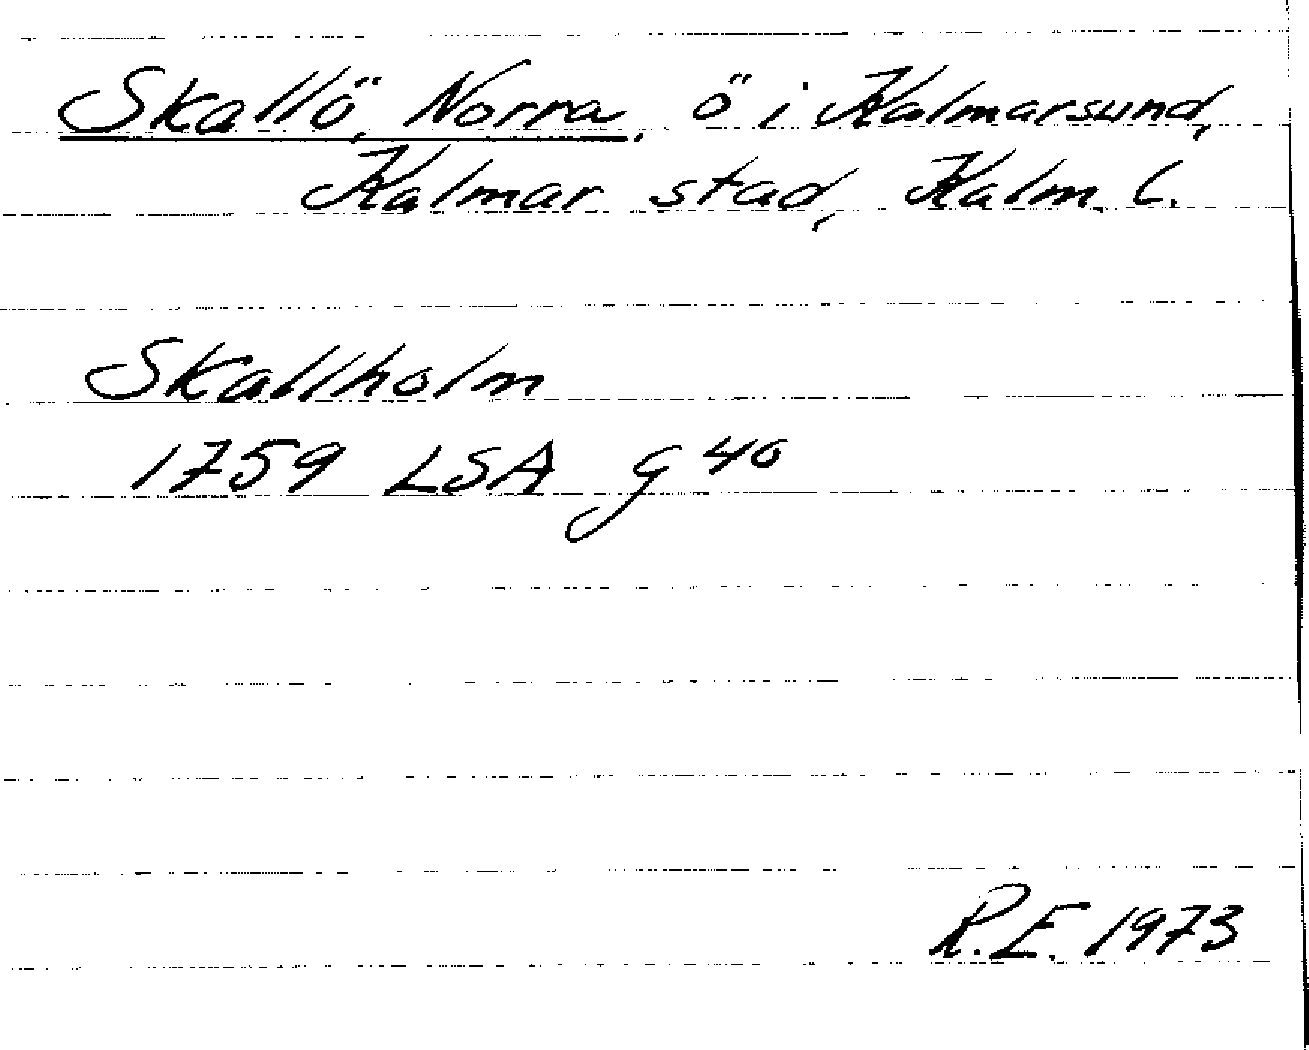 Skallö, Norra, ö i Kalmarsund,
Kalmar stad, Kalm. l.
Skallholm
1759 LSA g 40
R.E. 1973